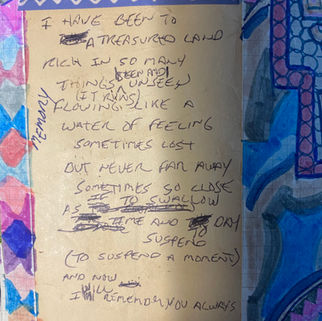 I HAVE BEEN TO
A TREASURED LAND
RICH IN SO MANY
SEEN AND
THINGS UNSEEN
(IT RUNS)
FLOWING LIKE A
WATER OF FEELING
SOMETIMES LOST
BUT NEVER FAR AWAY
SOMETIMES SO CLOSE
AS IF TO SWALLOW
TIME AND DAY
TO
SUSPEND
(TO SUSPEND A MOMENT)
AND NOW
I WILL REMEMBER YOU ALWAYS
MEMORY